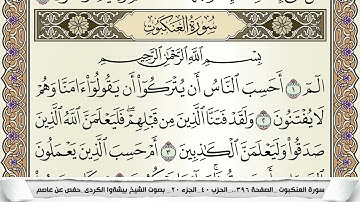 سُورَةُ الْعَنكَبُوتِ
بِسْمِ اللَّهِ الرَّحْمَٰنِ الرَّحِيمِ
الٓمٓ ١ أَحَسِبَ النَّاسُ أَن يُتْرَكُوٓا۟ أَن يَقُولُوٓا۟ ءَامَنَّا وَهُمْ
لَا يُفْتَنُونَ ٢ وَلَقَدْ فَتَنَّا الَّذِينَ مِن قَبْلِهِمْ ۖ فَلَيَعْلَمَنَّ اللَّهُ الَّذِينَ
صَدَقُوا۟ وَلَيَعْلَمَنَّ الْكَٰذِبِينَ ٣ أَمْ حَسِبَ الَّذِينَ يَعْمَلُونَ
سورة العنكبوت _ الصفحة ٣٩٦ .. الحزب ٤٠ _ الجزء ٢٠ _ بصوت الشيخ بيشةوا الكردي_ حفص عن عاصم